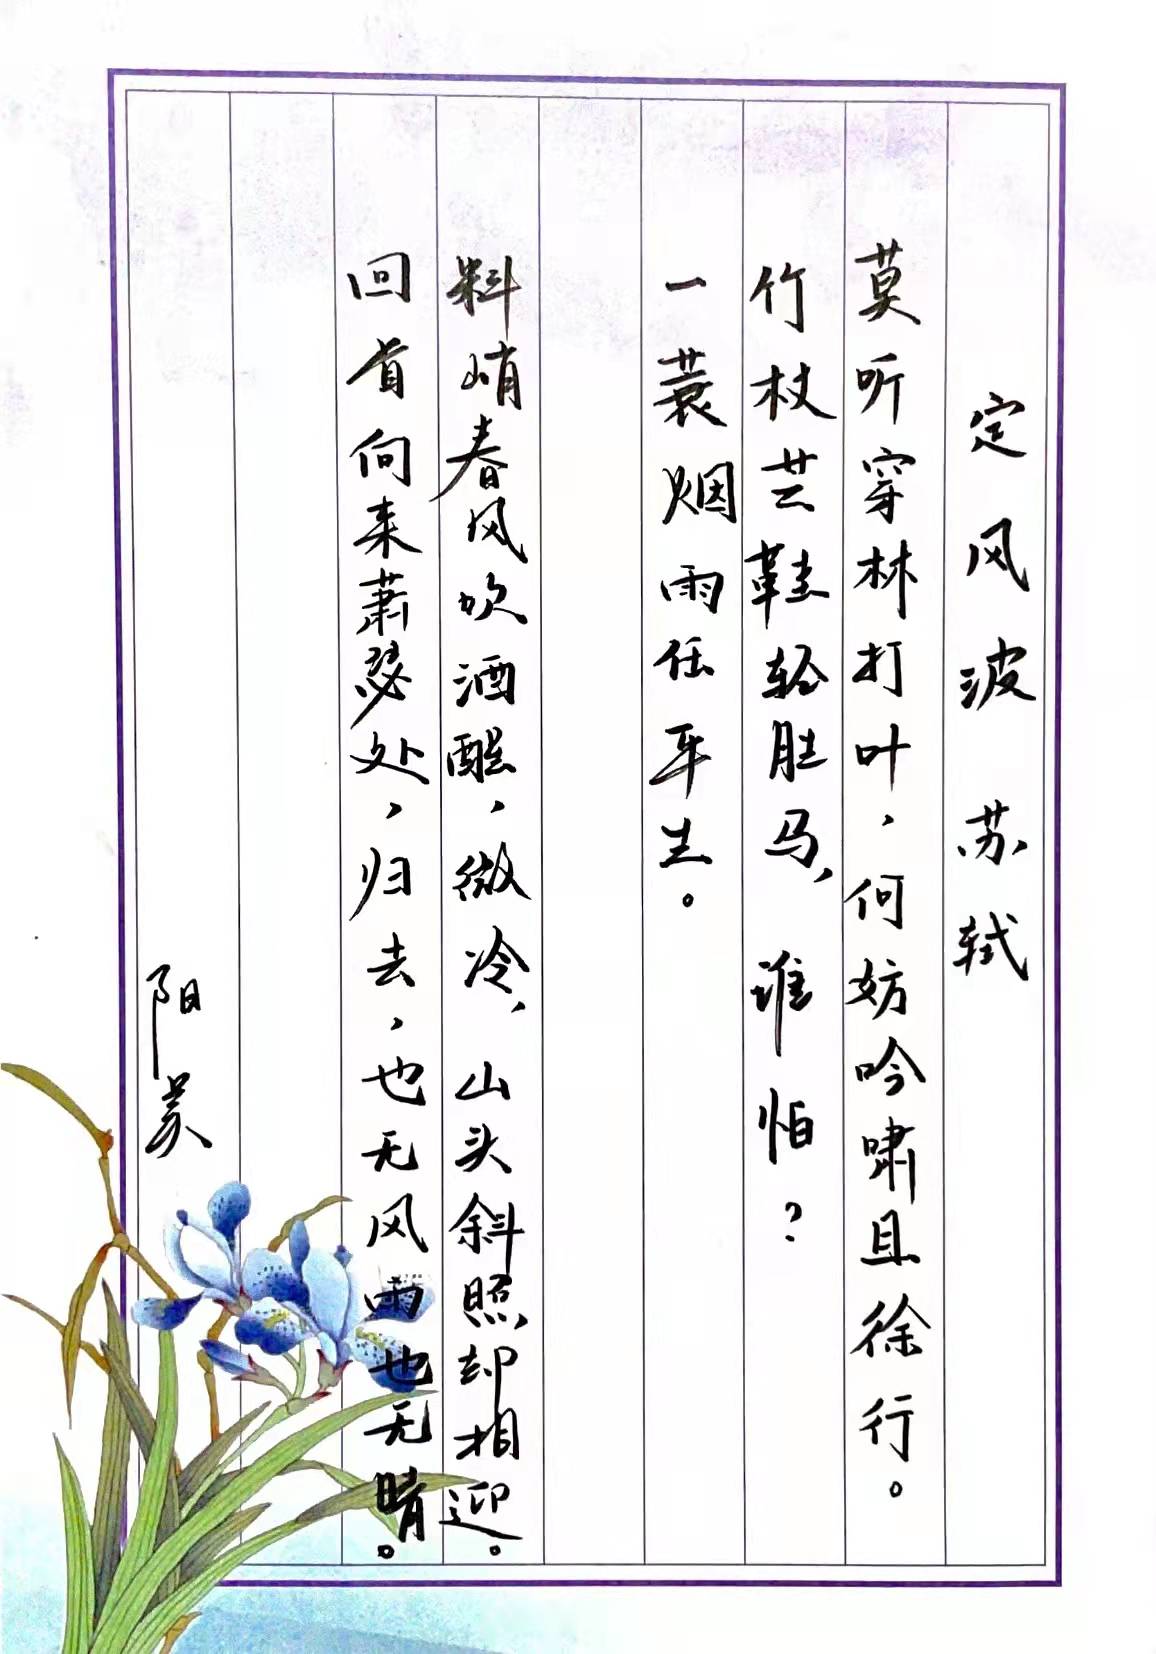 定风波 苏轼
莫听穿林打叶，何妨吟啸且徐行。
竹杖芒鞋轻胜马，谁怕？
一蓑烟雨任平生。
料峭春风吹酒醒，微冷，山头斜照却相迎。
回首向来萧瑟处，归去，也无风雨也无晴。
阳美